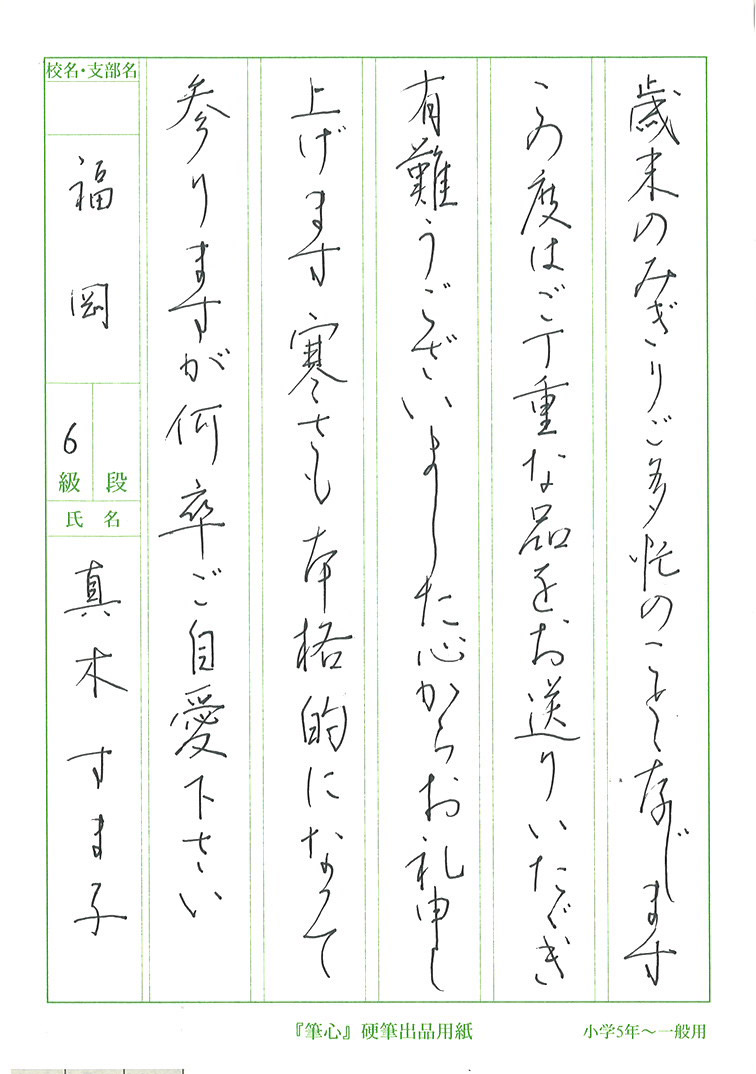 歳末のみぎりご多忙のことと存じます
この度はご丁重な品をお送りいただき
有難うございました心からお礼申し
上げます寒さも本格的になって
参りますが何卒ご自愛下さい
校名・支部名
福岡
段
6級
氏名
真木すま子
『筆心』硬筆出品用紙
小学5年～一般用